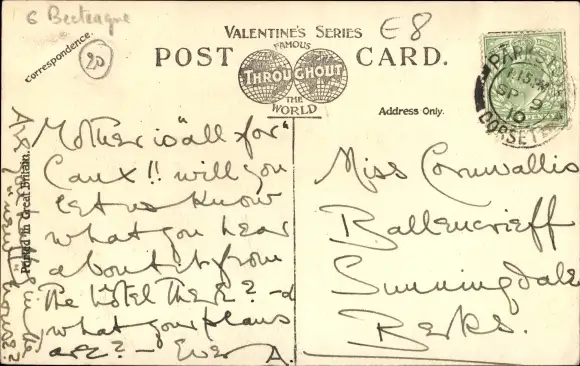 6 Beeteagne
Correspondence.
2P
VALENTINE'S SERIES
E8
FAMOUS
POST CARD.
THROUGHOUT
THE
WORLD
Address Only.
PARKST
1.15 PM
SP 9
10
DORSET
Mother is "all for"
Caux!! will you
let us know
what you hear
about it from
The Hotel There? - &
what your plans
are? - Ever A.
Are you
in the
house?
Posted in Great Britain.
Miss Cornwallis
Ballencrieff
Sunningdale
Berks.